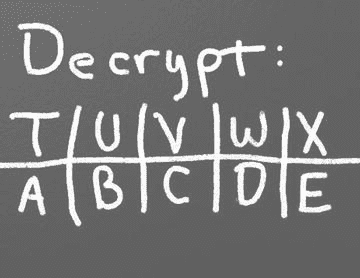 Decrypt:
T U V W X
A B C D E